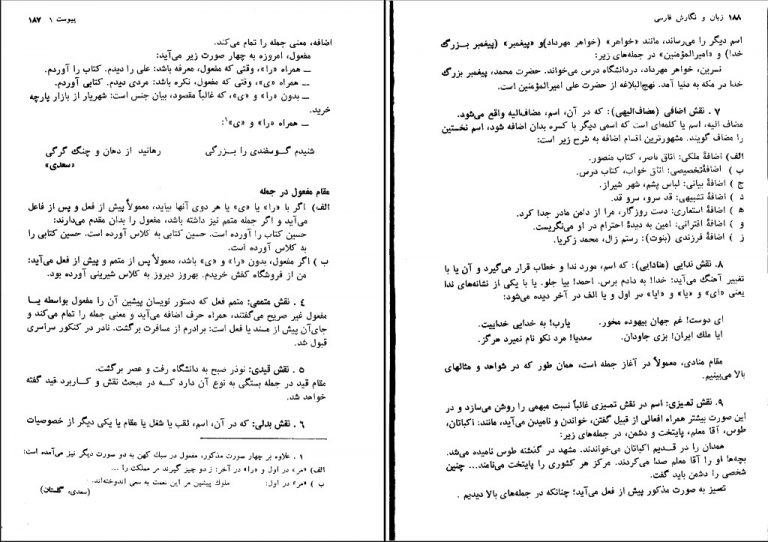 پیوست ۱ ۱۸۷
اضافه، معنی جمله را تمام می‌کند.
مفعول، امروزه به چهار صورت زیر می‌آید:
ــ همراه «را»، وقتی که مفعول، معرفه باشد: علی را دیدم. کتاب را آوردم.
ــ همراه «ی»، وقتی که مفعول، نکره باشد: مردی دیدم. کتابی آوردم.
ــ بدون «را» و «ی»، که غالباً مقصود، بیان جنس است: شهریار از بازار پارچه
خرید.
ــ همراه «را» و «ی»۱:
شنیدم گوسفندی را بزرگی رهانید از دهان و چنگ گرگی
«سعدی»
مقام مفعول در جمله
الف) اگر با «را» یا «ی» یا هر دوی آنها بیاید، معمولاً پیش از فعل و پس از فاعل
می‌آید و اگر جمله متمم نیز داشته باشد، مفعول را بدان مقدم می‌دارند:
حسین کتاب را آورده است. حسین کتابی به کلاس آورده است. حسین کتابی را
به کلاس آورده است.
ب ) اگر مفعول، بدون «را» و «ی» باشد، معمولاً پس از متمم و پیش از فعل می‌آید:
من از فروشگاه کفش خریدم. بهروز دیروز به کلاس شیرینی آورده بود.
۴ . نقش متممی: متمم فعل که دستور نویسان پیشین آن را مفعول بواسطه یا
مفعول غیر صریح می‌گفتند، همراه حرف اضافه می‌آید و معنی جمله را تمام می‌کند و
جای‌آن پیش از مسند یا فعل است: برادرم از مسافرت برگشت. نادر در کنکور سراسری
قبول شد.
۵ . نقش قیدی: نوذر صبح به دانشگاه رفت و عصر برگشت.
مقام قید در جمله بستگی به نوع آن دارد که در مبحث نقش و کاربرد قید گفته
خواهد شد.
۶ . نقش بدلی: که در آن، اسم، لقب یا شغل یا مقام یا یکی دیگر از خصوصیات
۱ . علاوه بر چهار صورت مذکور، مفعول در سبك کهن به دو صورت دیگر نیز می‌آمده است:
الف) «مر» در اول و «را» در آخر: ز دو چیز گیرند مر مملکت را ...
ب ) «مر» در اول: ملوك پیشین مر این نعمت به سعی اندوخته‌اند.
(سعدی، گلستان)
۱۸۸ زبان و نگارش فارسی
اسم دیگر را می‌رساند، مانند «خواهر» (خواهر مهرداد)و «پیغمبر» (پیغمبر بزرگ
خدا) و «امیرالمؤمنین» در جمله‌های زیر:
نسرین، خواهر مهرداد، دردانشگاه درس می‌خواند. حضرت محمد، پیغمبر بزرگ
خدا در مکه به دنیا آمد. نهج‌البلاغه از حضرت علی امیرالمؤمنین است.
۷ . نقش اضافی (مضاف‌الیهی): که در آن، اسم، مضاف‌الیه واقع می‌شود.
مضاف الیه، اسم یا کلمه‌ای است که اسمی دیگر با کسره بدان اضافه شود، اسم نخستین
را مضاف گویند. مشهورترین اقسام اضافه به شرح زیر است:
الف) اضافهٔ ملکی: اتاق ناصر، کتاب منصور.
ب ) اضافهٔ‌تخصیصی: اتاق خواب، کتاب درس.
ج ) اضافهٔ بیانی: لباس پشم، شهر شیراز.
د ) اضافهٔ تشبیهی: قد سرو، سرو قد.
ه ) اضافهٔ استعاری: دست روزگار، مرا از دامن مادر جدا کرد.
و ) اضافهٔ اقترانی: امین به دیدهٔ احترام در او می‌نگریست.
ز ) اضافهٔ فرزندی (بنوت): رستم زال، محمد زکریا.
۸ . نقش ندایی (منادایی): که اسم، مورد ندا و خطاب قرار می‌گیرد و آن یا با
تغییر آهنگ می‌آید: خدا! به دادم برس. احمد! بیا جلو. یا با یکی از نشانه‌های ندا
یعنی «ای» و «یا» و «ایا» در اول و یا الف در آخر دیده می‌شود:
ای دوست! غم جهان بیهوده مخور. یارب! به خدایی خداییت.
ایا ملك ایران! بزی جاودان. سعدیا! مرد نکو نام نمیرد هرگز.
مقام منادی، معمولاً در آغاز جمله است، همان طور که در شواهد و مثالهای
بالا می‌بینیم.
۹ . نقش تمیزی: اسم در نقش تمیزی غالباً نسبت مبهمی را روشن می‌سازد و در
این صورت بیشتر همراه افعالی از قبیل گفتن، خواندن و نامیدن می‌آید، مانند: اکباتان،
طوس، آقا معلم، پایتخت و دشمن، در جمله‌های زیر:
همدان را در قدیم اکباتان می‌خواندند. مشهد در گذشته طوس نامیده می‌شد.
بچه‌ها او را آقا معلم صدا می‌کردند. مرکز هر کشوری را پایتخت می‌نامند... چنین
شخصی را دشمن باید گفت.
تمیز به صورت مذکور پیش از فعل می‌آید؛ چنانکه در جمله‌های بالا دیدیم .